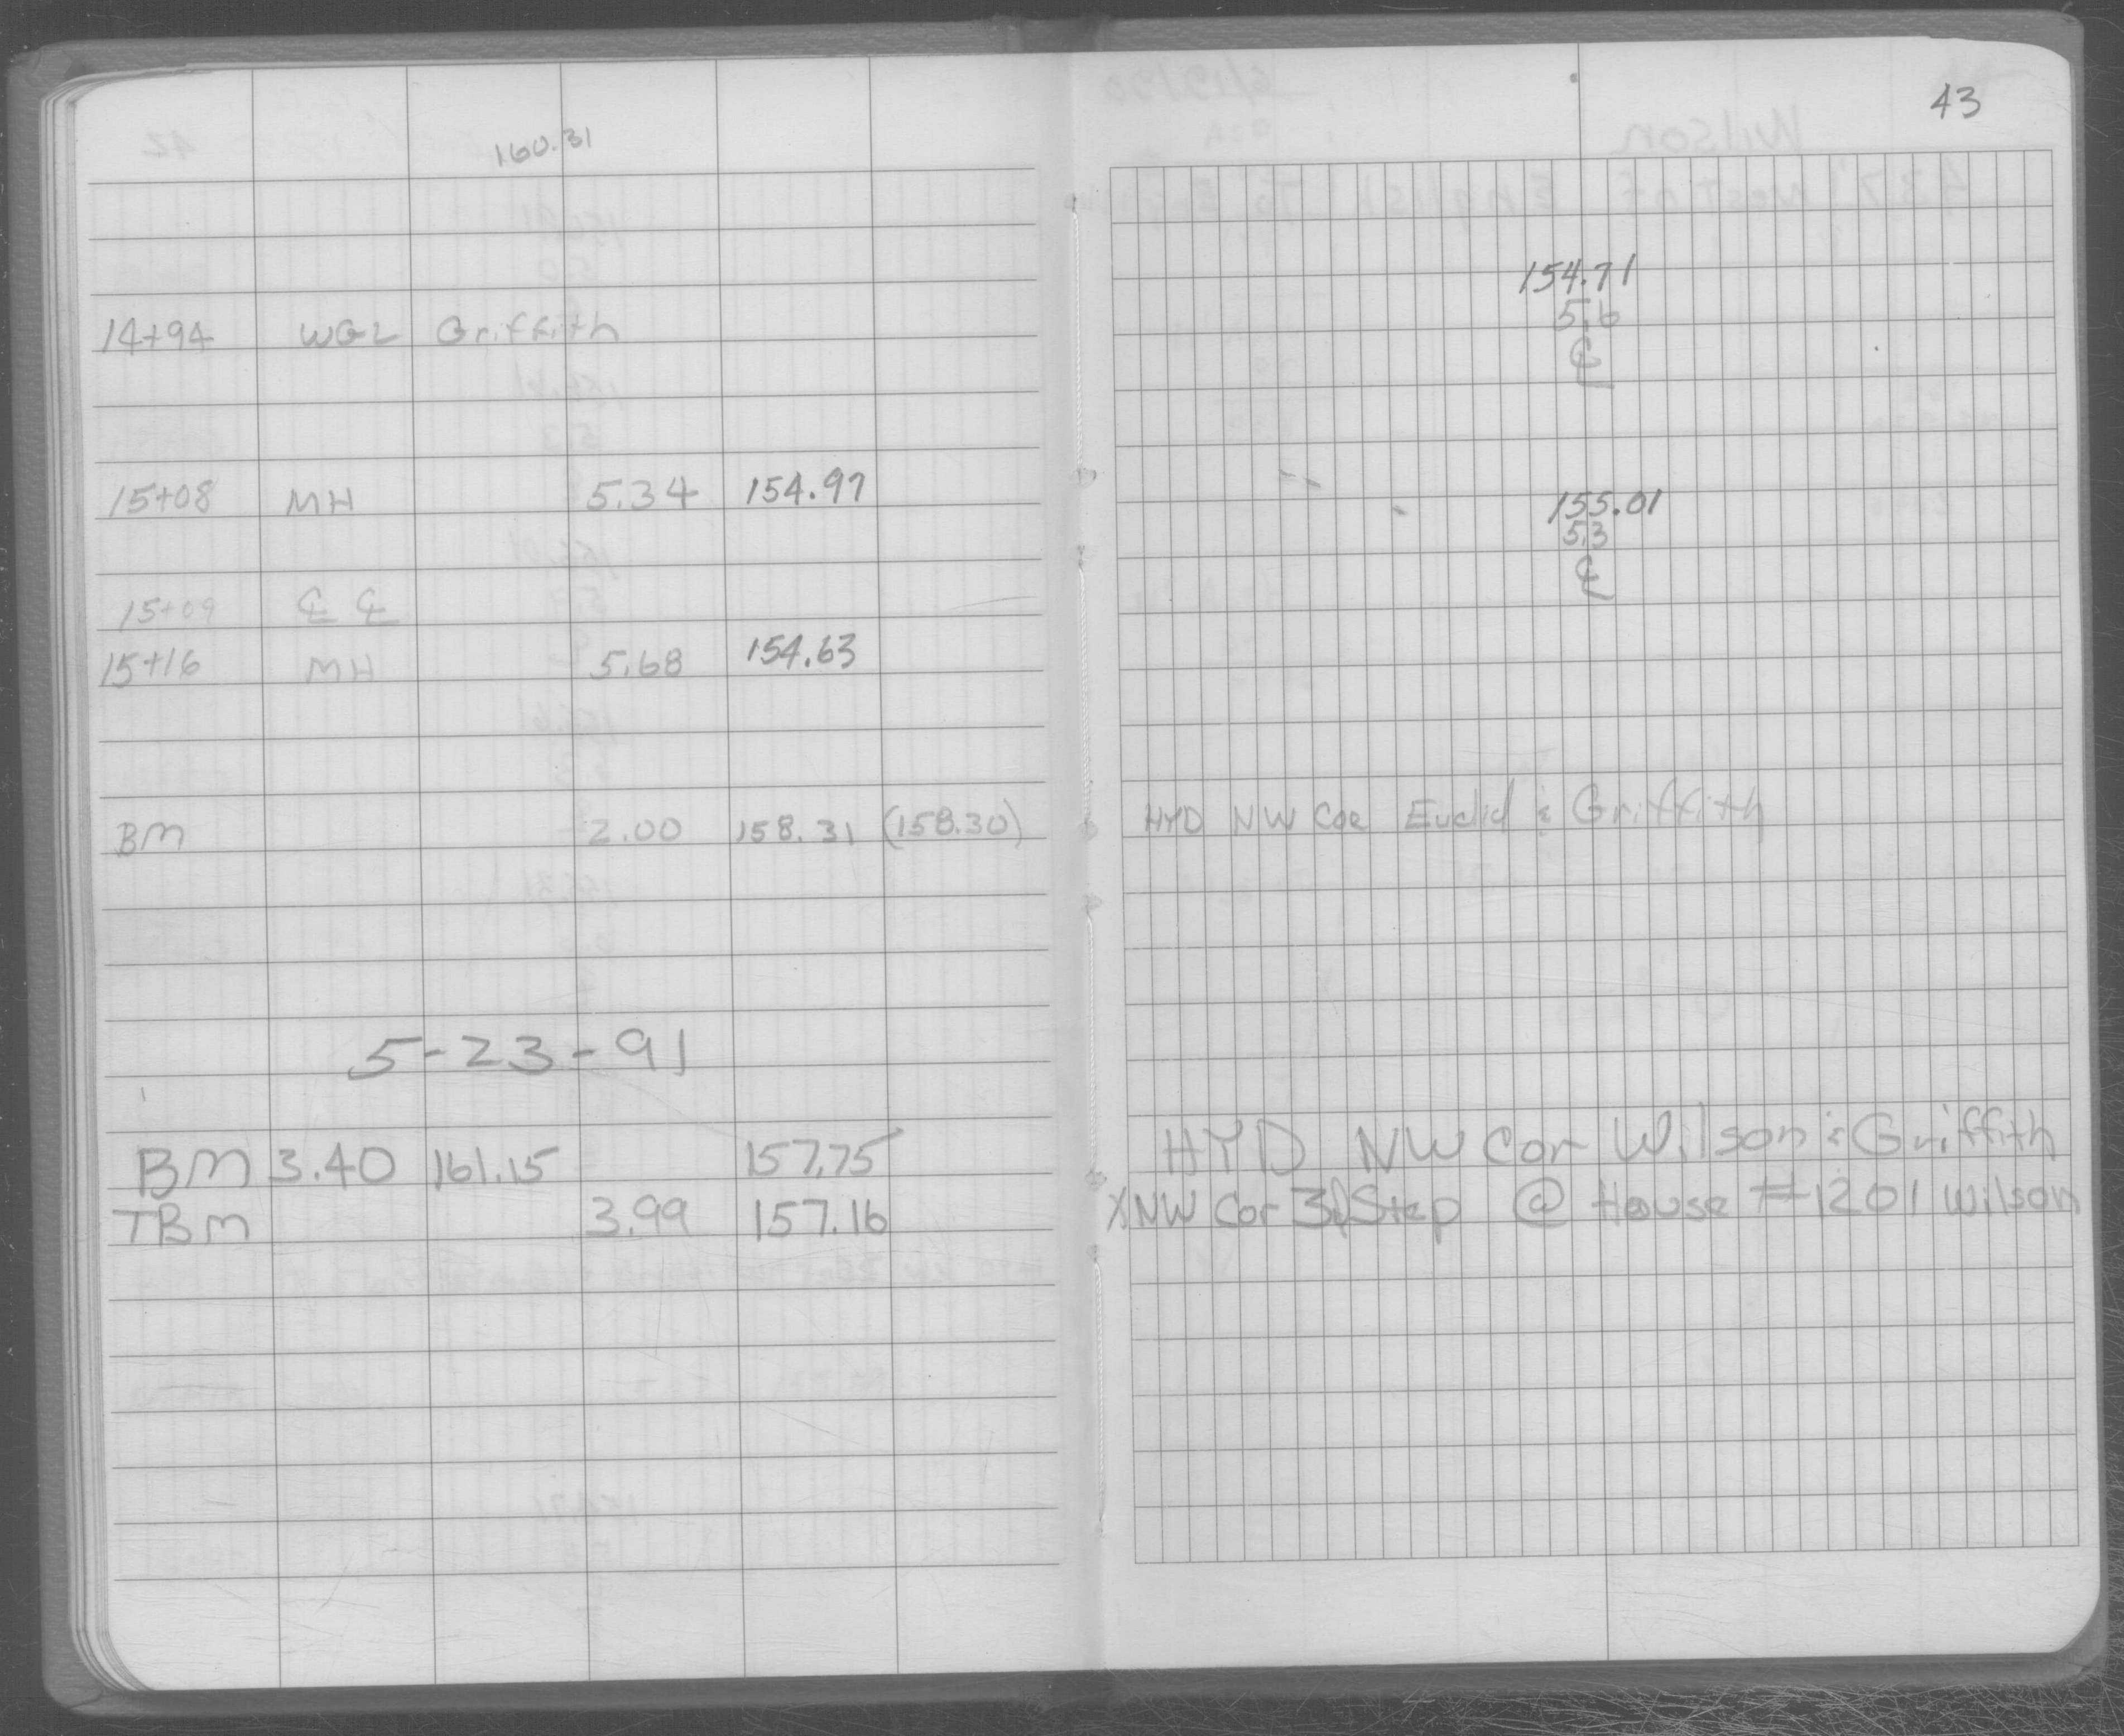 160.31
14+94 WGL Griffith
15+08 MH 5.34 154.97
15+09 ℄ ℄
15+16 MH 5.68 154.63
BM 2.00 158.31 (158.30)
5-23-91
BM 3.40 161.15 157.75
TBM 3.99 157.16
43
154.71
5.6
℄
155.01
5.3
℄
HYD NW Cor Euclid & Griffith
HYD NW Cor Wilson & Griffith
X NW Cor 3rd Step @ House #1201 Wilson